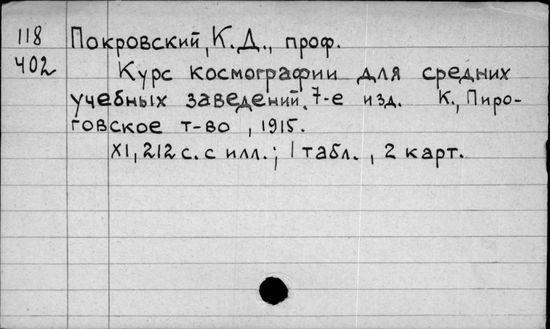 118 Покровский, К.Д., проф.
402 Курс космографии для средних
учебных заведений. 7-е изд. К., Пиро-
говское т-во, 1915.
XI, 212 с. с илл.; 1 табл., 2 карт.